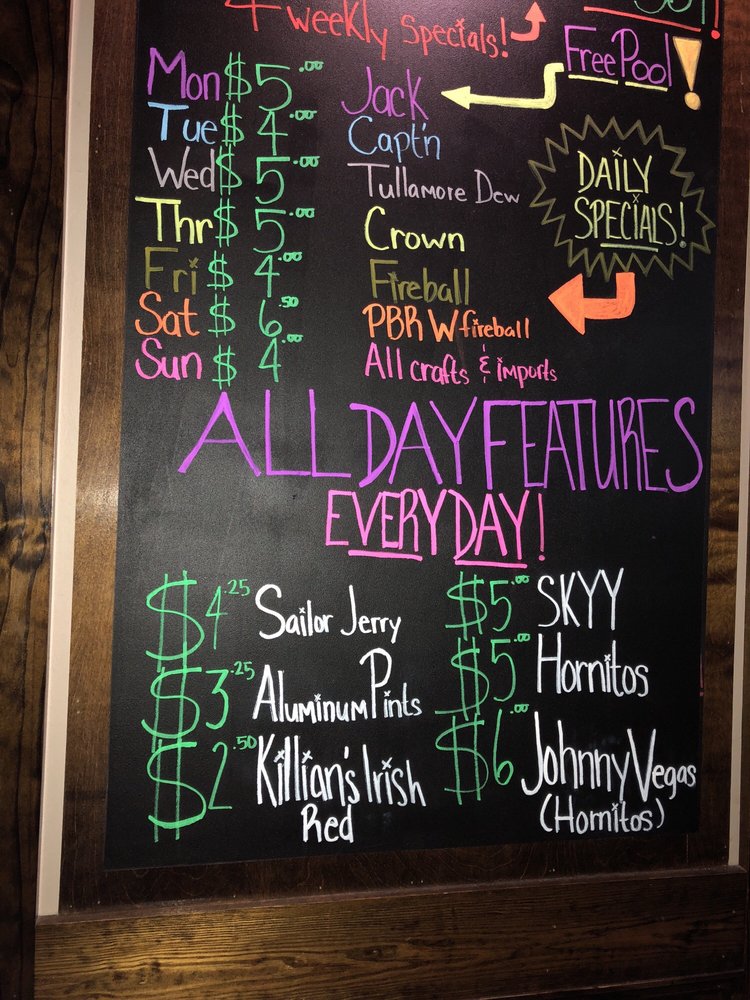 Weekly Specials!
Free Pool!
Mon $5.00 Jack
Tue $4.00 Capt'n
Wed $5.00 Tullamore Dew
Thr $5.00 Crown
Fri $4.00 Fireball
Sat $6.50 PBR W fireball
Sun $4.00 All crafts & imports
DAILY
SPECIALS!
ALL DAY FEATURES
EVERY DAY!
$4.25 Sailor Jerry
$3.25 Aluminum Pints
$2.50 Killian's Irish
Red
$5.00 SKYY
$5.00 Hornitos
$6.00 Johnny Vegas
(Hornitos)